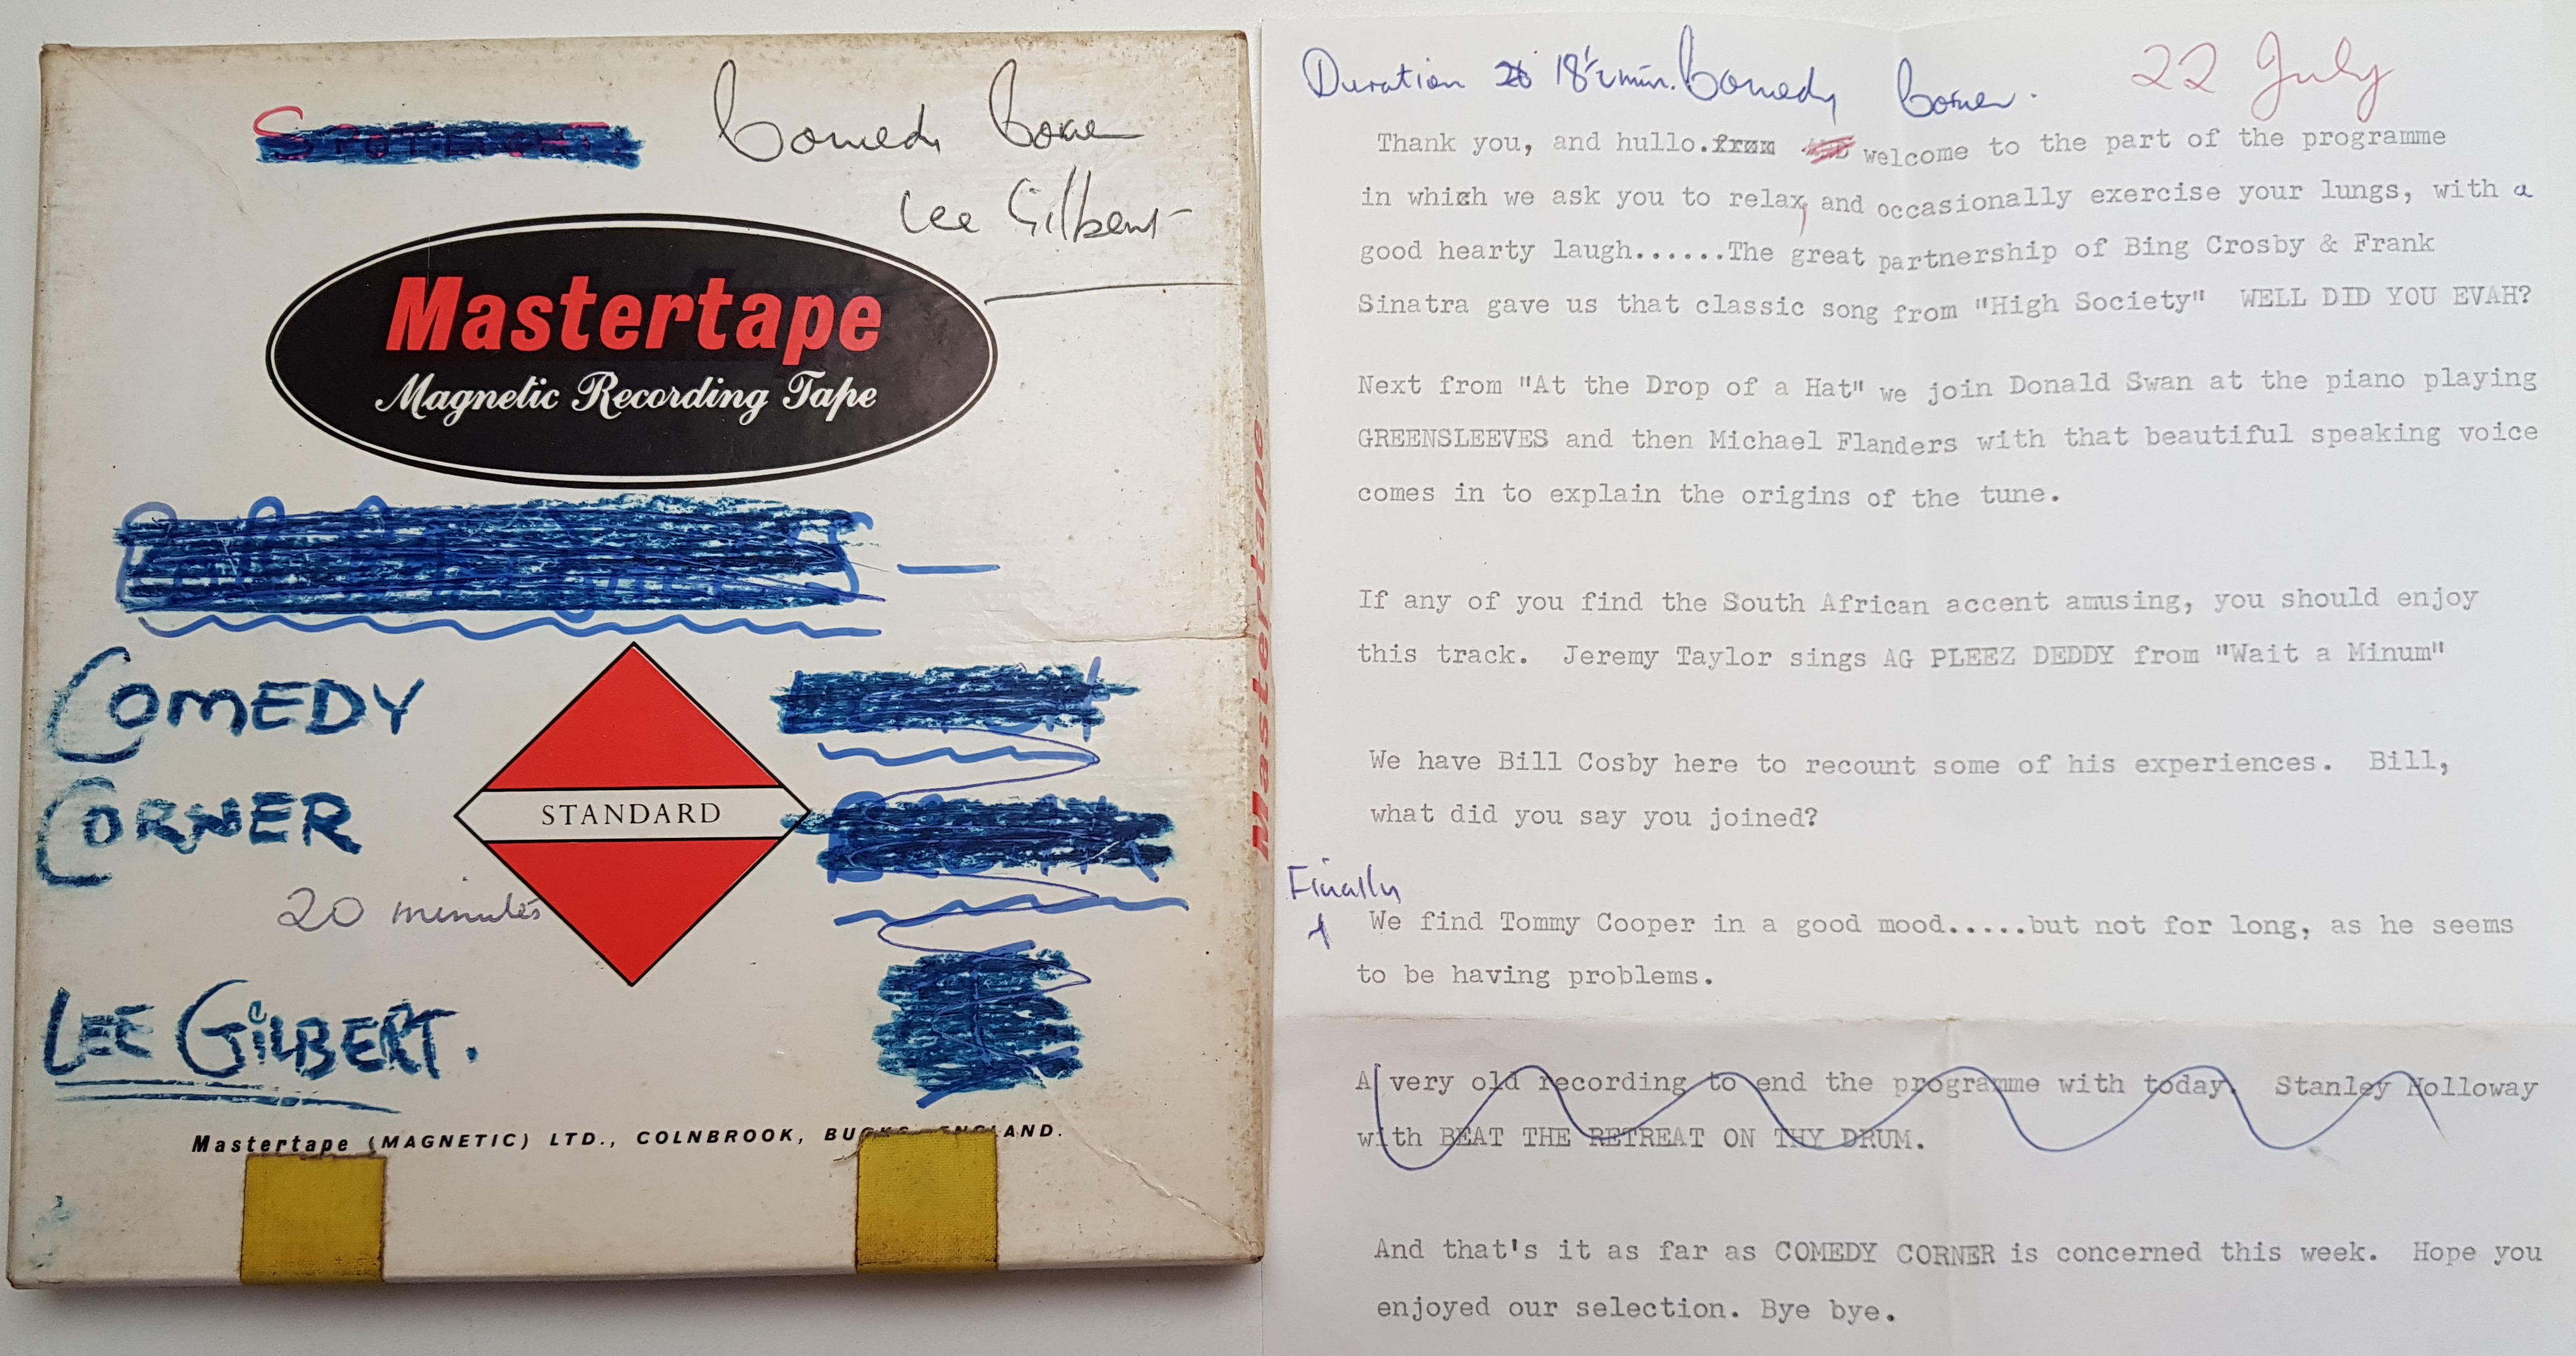 SPOTLIGHT.
Comedy Corner
Lee Gilbert
Mastertape
Magnetic Recording Tape
COMEDY
CORNER
STANDARD
20 minutes
LEE GILBERT.
Mastertape (MAGNETIC) LTD., COLNBROOK, BUCKS, ENGLAND.
Mastertape
Duration 18½ min. Comedy Corner. 22 July
Thank you, and hullo. from welcome to the part of the programme
in which we ask you to relax, and occasionally exercise your lungs, with a
good hearty laugh......The great partnership of Bing Crosby & Frank
Sinatra gave us that classic song from "High Society" WELL DID YOU EVAH?
Next from "At the Drop of a Hat" we join Donald Swan at the piano playing
GREENSLEEVES and then Michael Flanders with that beautiful speaking voice
comes in to explain the origins of the tune.
If any of you find the South African accent amusing, you should enjoy
this track. Jeremy Taylor sings AG PLEEZ DEDDY from "Wait a Minum"
We have Bill Cosby here to recount some of his experiences. Bill,
what did you say you joined?
Finally
We find Tommy Cooper in a good mood.....but not for long, as he seems
to be having problems.
A very old recording to end the programme with today. Stanley Holloway
with BEAT THE RETREAT ON THY DRUM.
And that's it as far as COMEDY CORNER is concerned this week. Hope you
enjoyed our selection. Bye bye.